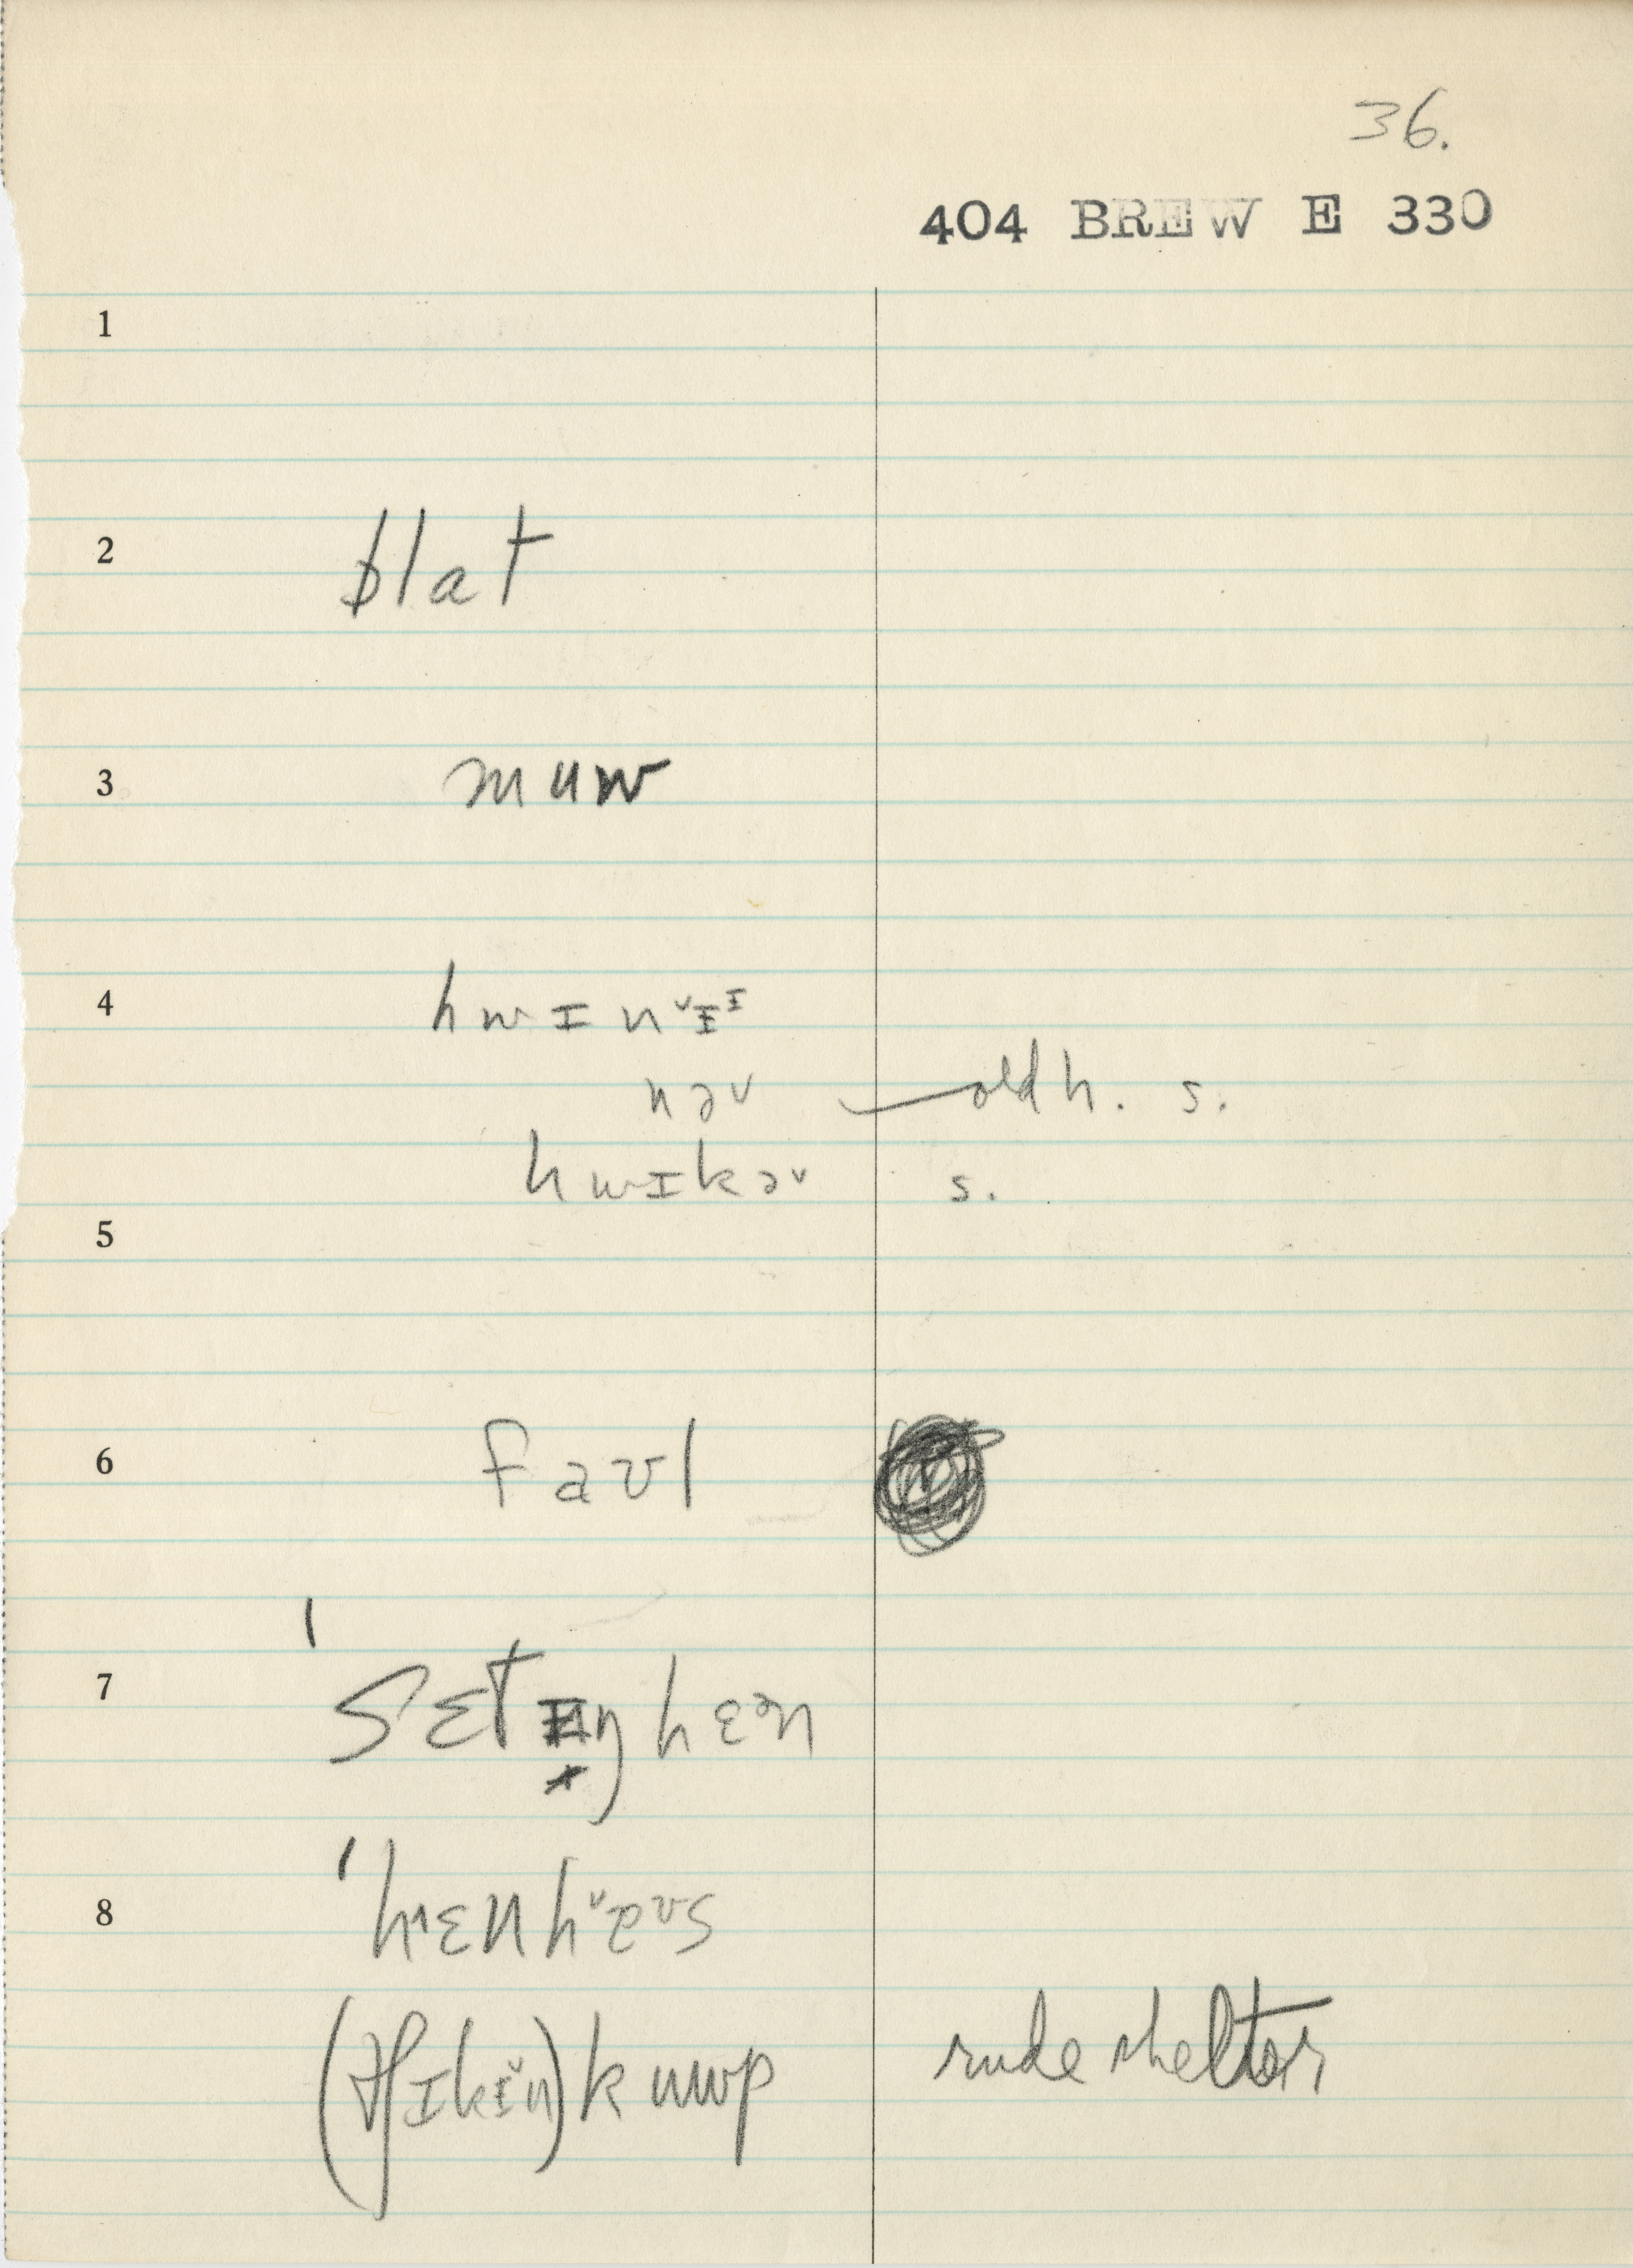 36.
404 BREW E 330
1
2 blat
3 muw
4 hwɪnˇɪᶦ
nəv — old h. s.
hwɪkəv s.
5
6 faʊl
7 ˈsɛtɪŋhɛən
8 ˈhɛnhaʊs
(tʃɪkɪ̆n)kuwp rude shelter